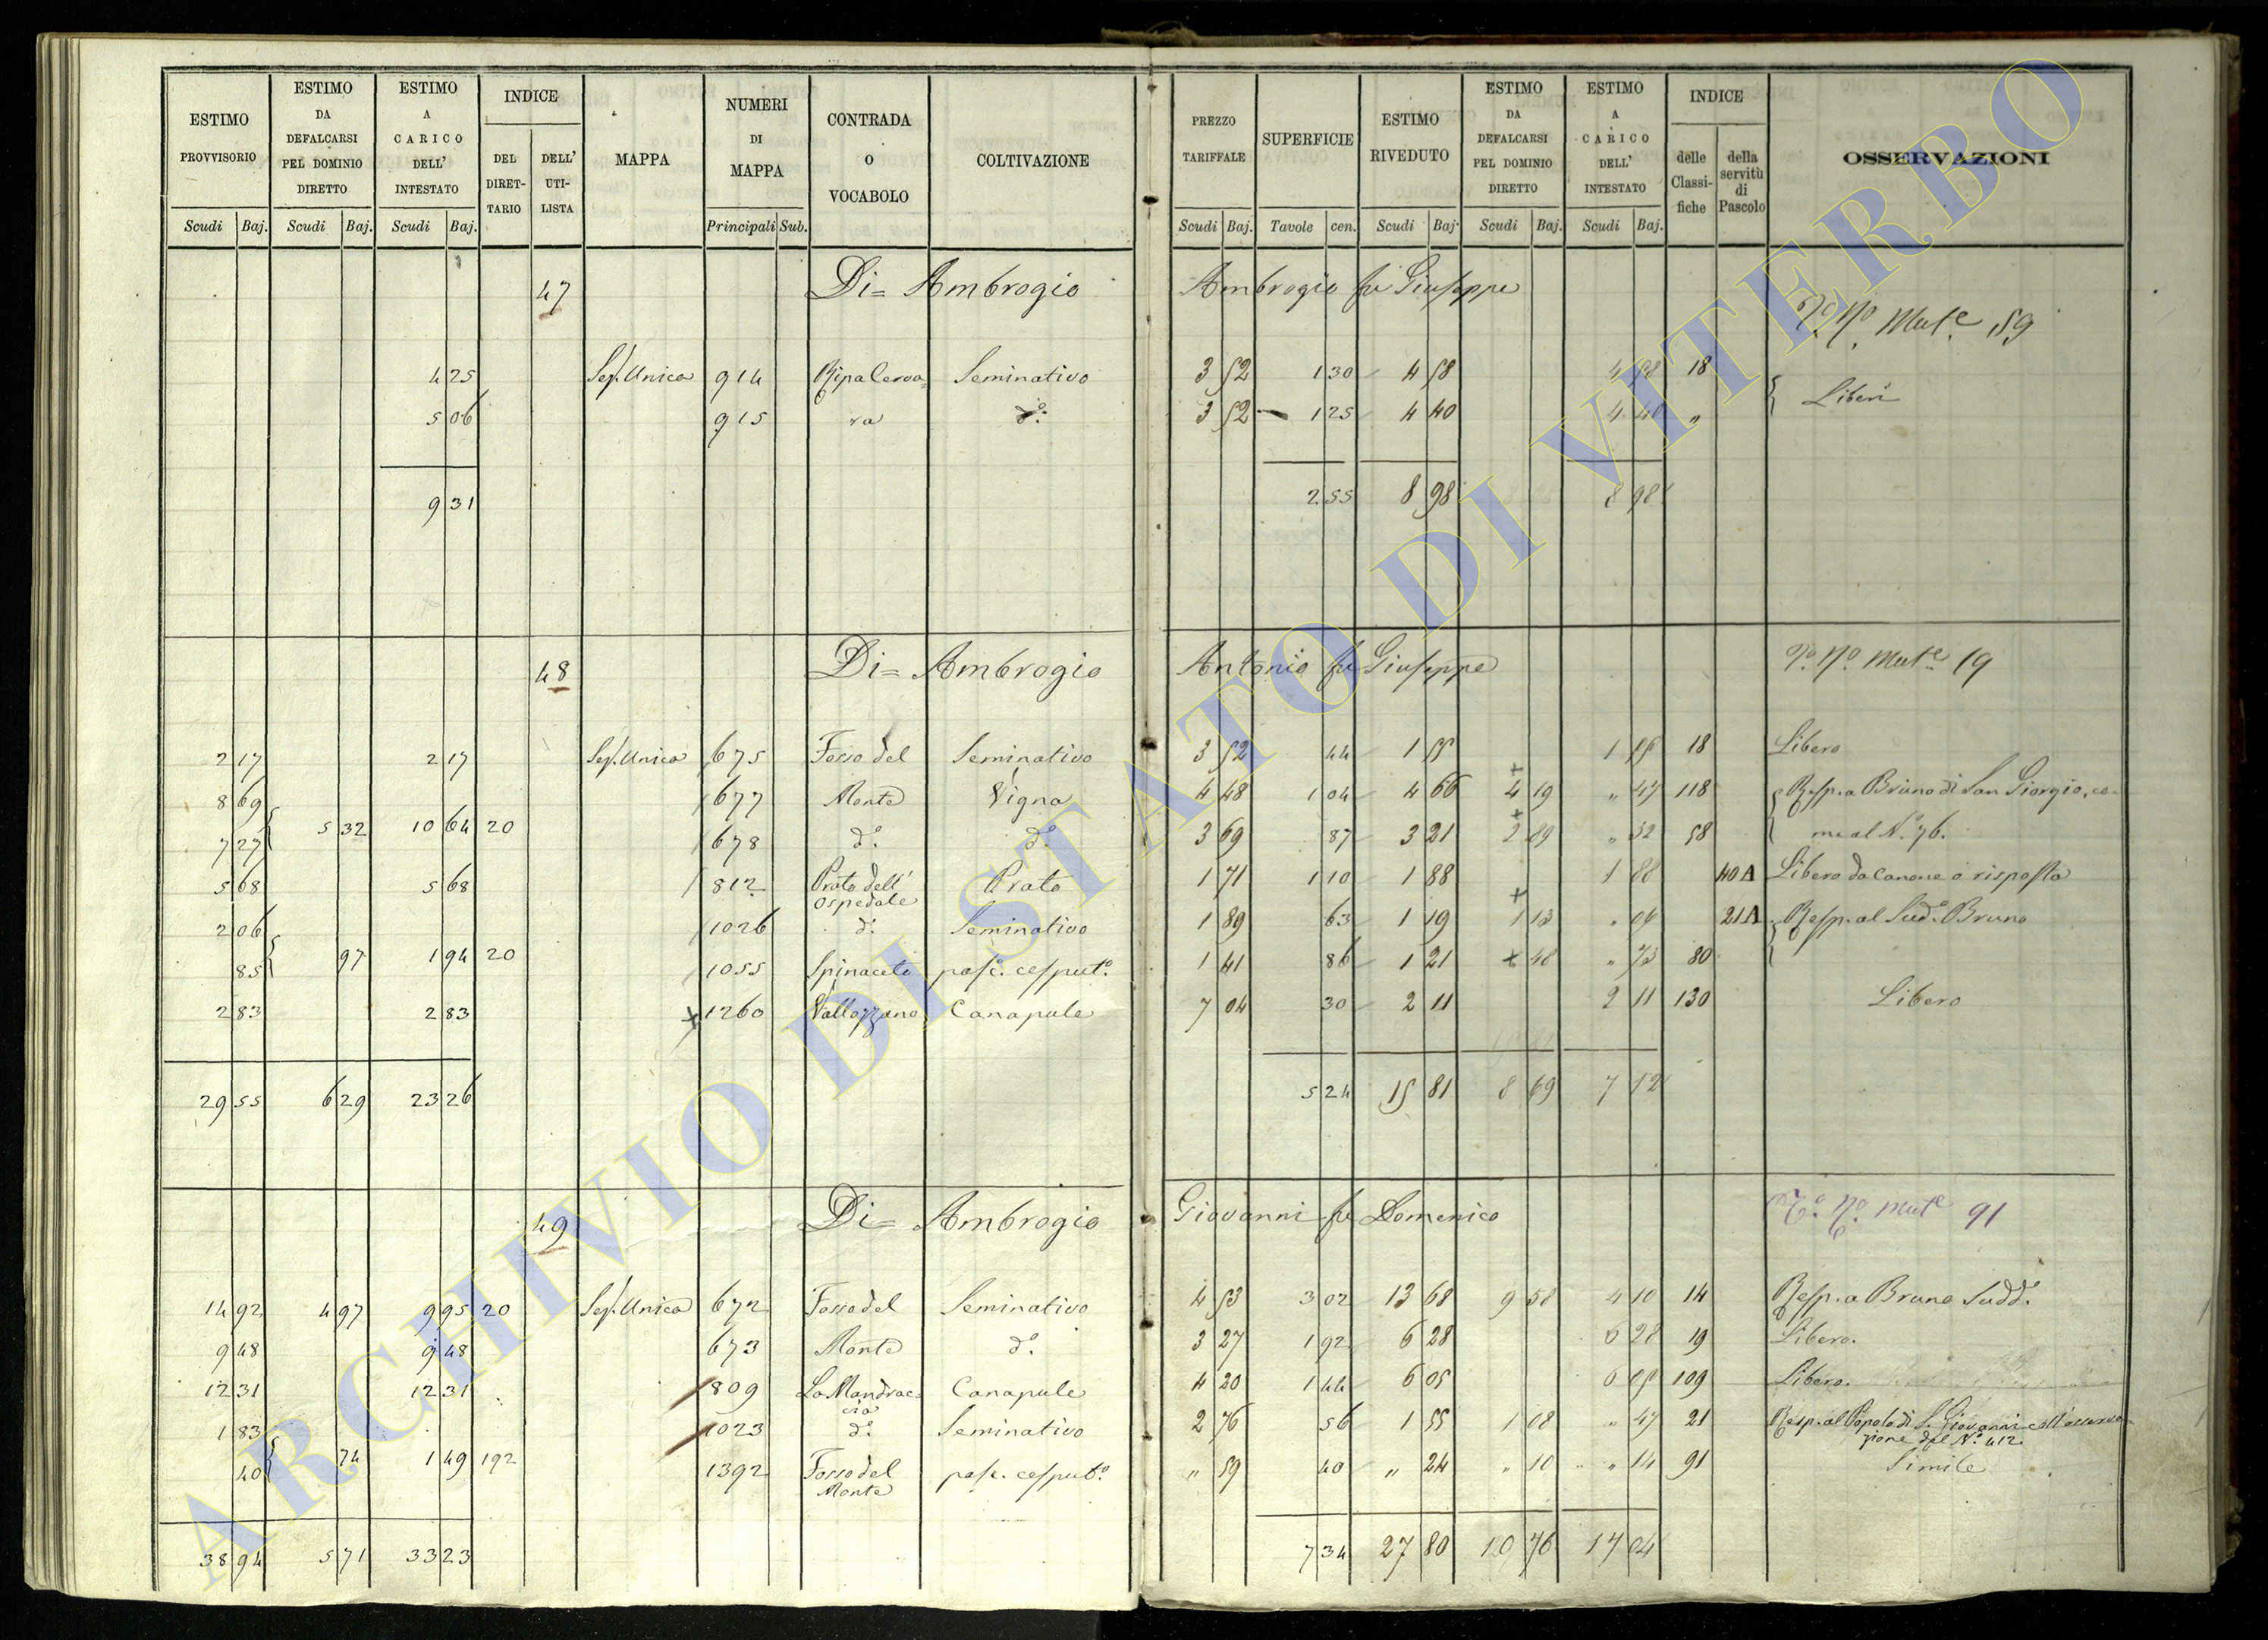 ESTIMO PROVVISORIO | ESTIMO DA DEFALCARSI PEL DOMINIO DIRETTO | ESTIMO A CARICO DELL' INTESTATO | INDICE DEL DIRET-TARIO | DELL' UTI-LISTA | MAPPA | NUMERI DI MAPPA | CONTRADA O VOCABOLO | COLTIVAZIONE | PREZZO TARIFFALE | SUPERFICIE | ESTIMO RIVEDUTO | ESTIMO DA DEFALCARSI PEL DOMINIO DIRETTO | ESTIMO A CARICO DELL' INTESTATO | INDICE delle Classi-fiche | della servitù di Pascolo | OSSERVAZIONI
Scudi | Baj. | Scudi | Baj. | Scudi | Baj. | Principali | Sub. | Scudi | Baj. | Tavole | cen. | Scudi | Baj. | Scudi | Baj. | Scudi | Baj.
47 Di= Ambrogio Ambrogio fu Giuseppe
Mut.e 59
4 25 | Sez. Unica | 914 | Ripa Cerva= | Seminativo | 3 52 | 1 30 | 4 58 | 4 58 | 18 | Liberi
5 06 | 915 | ra | d.o | 3 52 | 1 25 | 4 40 | 4 40 | "
9 31 | 2 55 | 8 98 | 8 98
48 Di= Ambrogio Antonio fu Giuseppe
Mut.e 19
2 17 | 2 17 | Sez. Unica | 675 | Fosso del | Seminativo | 3 52 | 44 | 1 55 | 1 55 | 18 | Libero
8 69 | 677 | Monte | Vigna | 4 48 | 1 04 | 4 66 | 4 19 | " 47 | 118 | Resp. a Bruno di San Giorgio, co=
7 27 | 5 32 | 10 64 | 20 | 678 | d.o | d.o | 3 69 | 87 | 3 21 | 2 89 | " 32 | 58 | me al N.o 76.
5 68 | 5 68 | 812 | Prato dell' Ospedale | Prato | 1 71 | 1 10 | 1 88 | 1 88 | 40A | Libero da Canone o risposta
2 06 | 1026 | d.o | Seminativo | 1 89 | 63 | 1 19 | 1 13 | " 06 | 21A | Resp. al Sud.o Bruno
85 | 97 | 1 94 | 20 | 1055 | Spinaceto | pasc. cesput.o | 1 41 | 86 | 1 21 | 48 | " 73 | 80
2 83 | 2 83 | 1260 | Vallozzano | Canapule | 7 04 | 30 | 2 11 | 2 11 | 130 | Libero
29 55 | 6 29 | 23 26 | 5 24 | 15 81 | 8 69 | 7 12
49 Di= Ambrogio Giovanni fu Domenico
Mut.e 91
14 92 | 4 97 | 9 95 | 20 | Sez. Unica | 672 | Fosso del | Seminativo | 4 53 | 3 02 | 13 68 | 9 58 | 4 10 | 14 | Resp. a Bruno Sudd.o
9 48 | 9 48 | 673 | Monte | d.o | 3 27 | 1 92 | 6 28 | 6 28 | 19 | Libero.
12 31 | 12 31 | 809 | La Mandrac=cia | Canapule | 4 20 | 1 44 | 6 05 | 6 05 | 109 | Libero.
1 83 | 1023 | d.o | Seminativo | 2 76 | 56 | 1 55 | 1 08 | " 47 | 21 | Resp. al Popolo di S. Giovanni coll'osserva=zione del N.o 412.
40 | 74 | 1 49 | 192 | 1392 | Fosso del Monte | pasc. cesput.o | " 59 | 40 | " 24 | " 10 | " 14 | 91 | Simile
38 94 | 5 71 | 33 23 | 7 34 | 27 80 | 10 76 | 17 04
ARCHIVIO DI STATO DI VITERBO